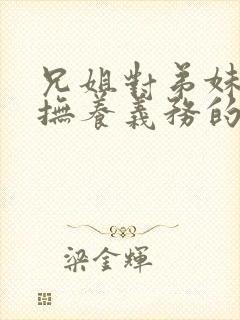 兄姐對弟妹
撫養義務的
梁金輝